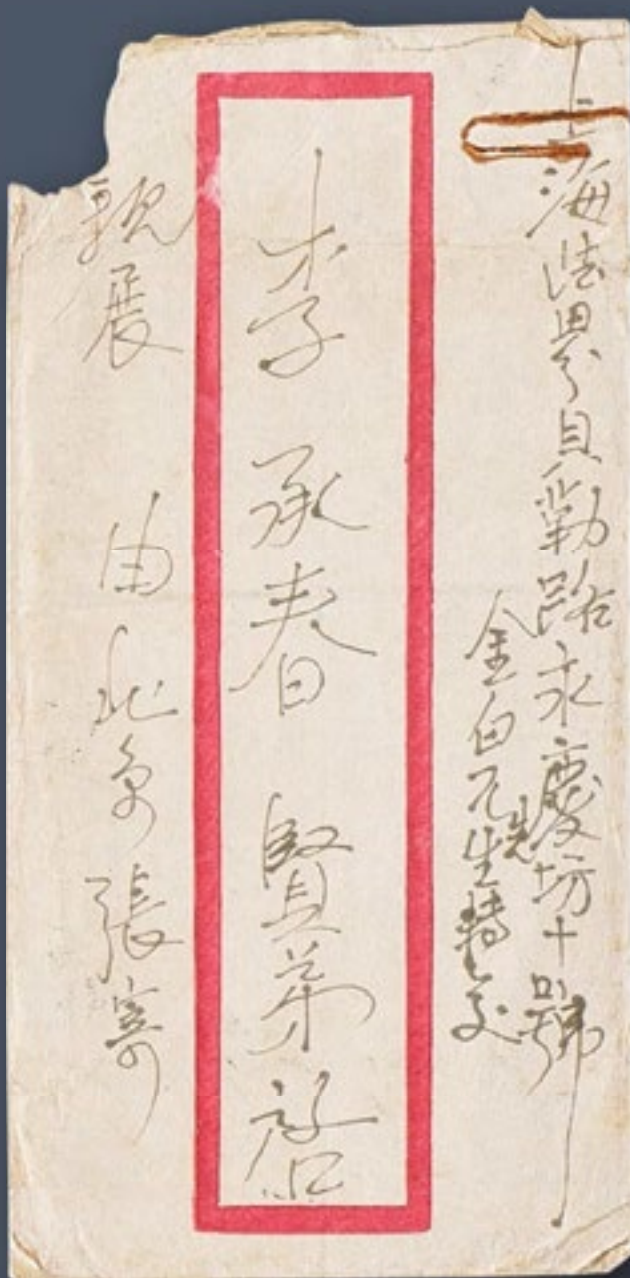 上海法界貝勒路永慶坊十號
金白元先生轉交
李承春 賢弟 啓
親展 由北京張寄